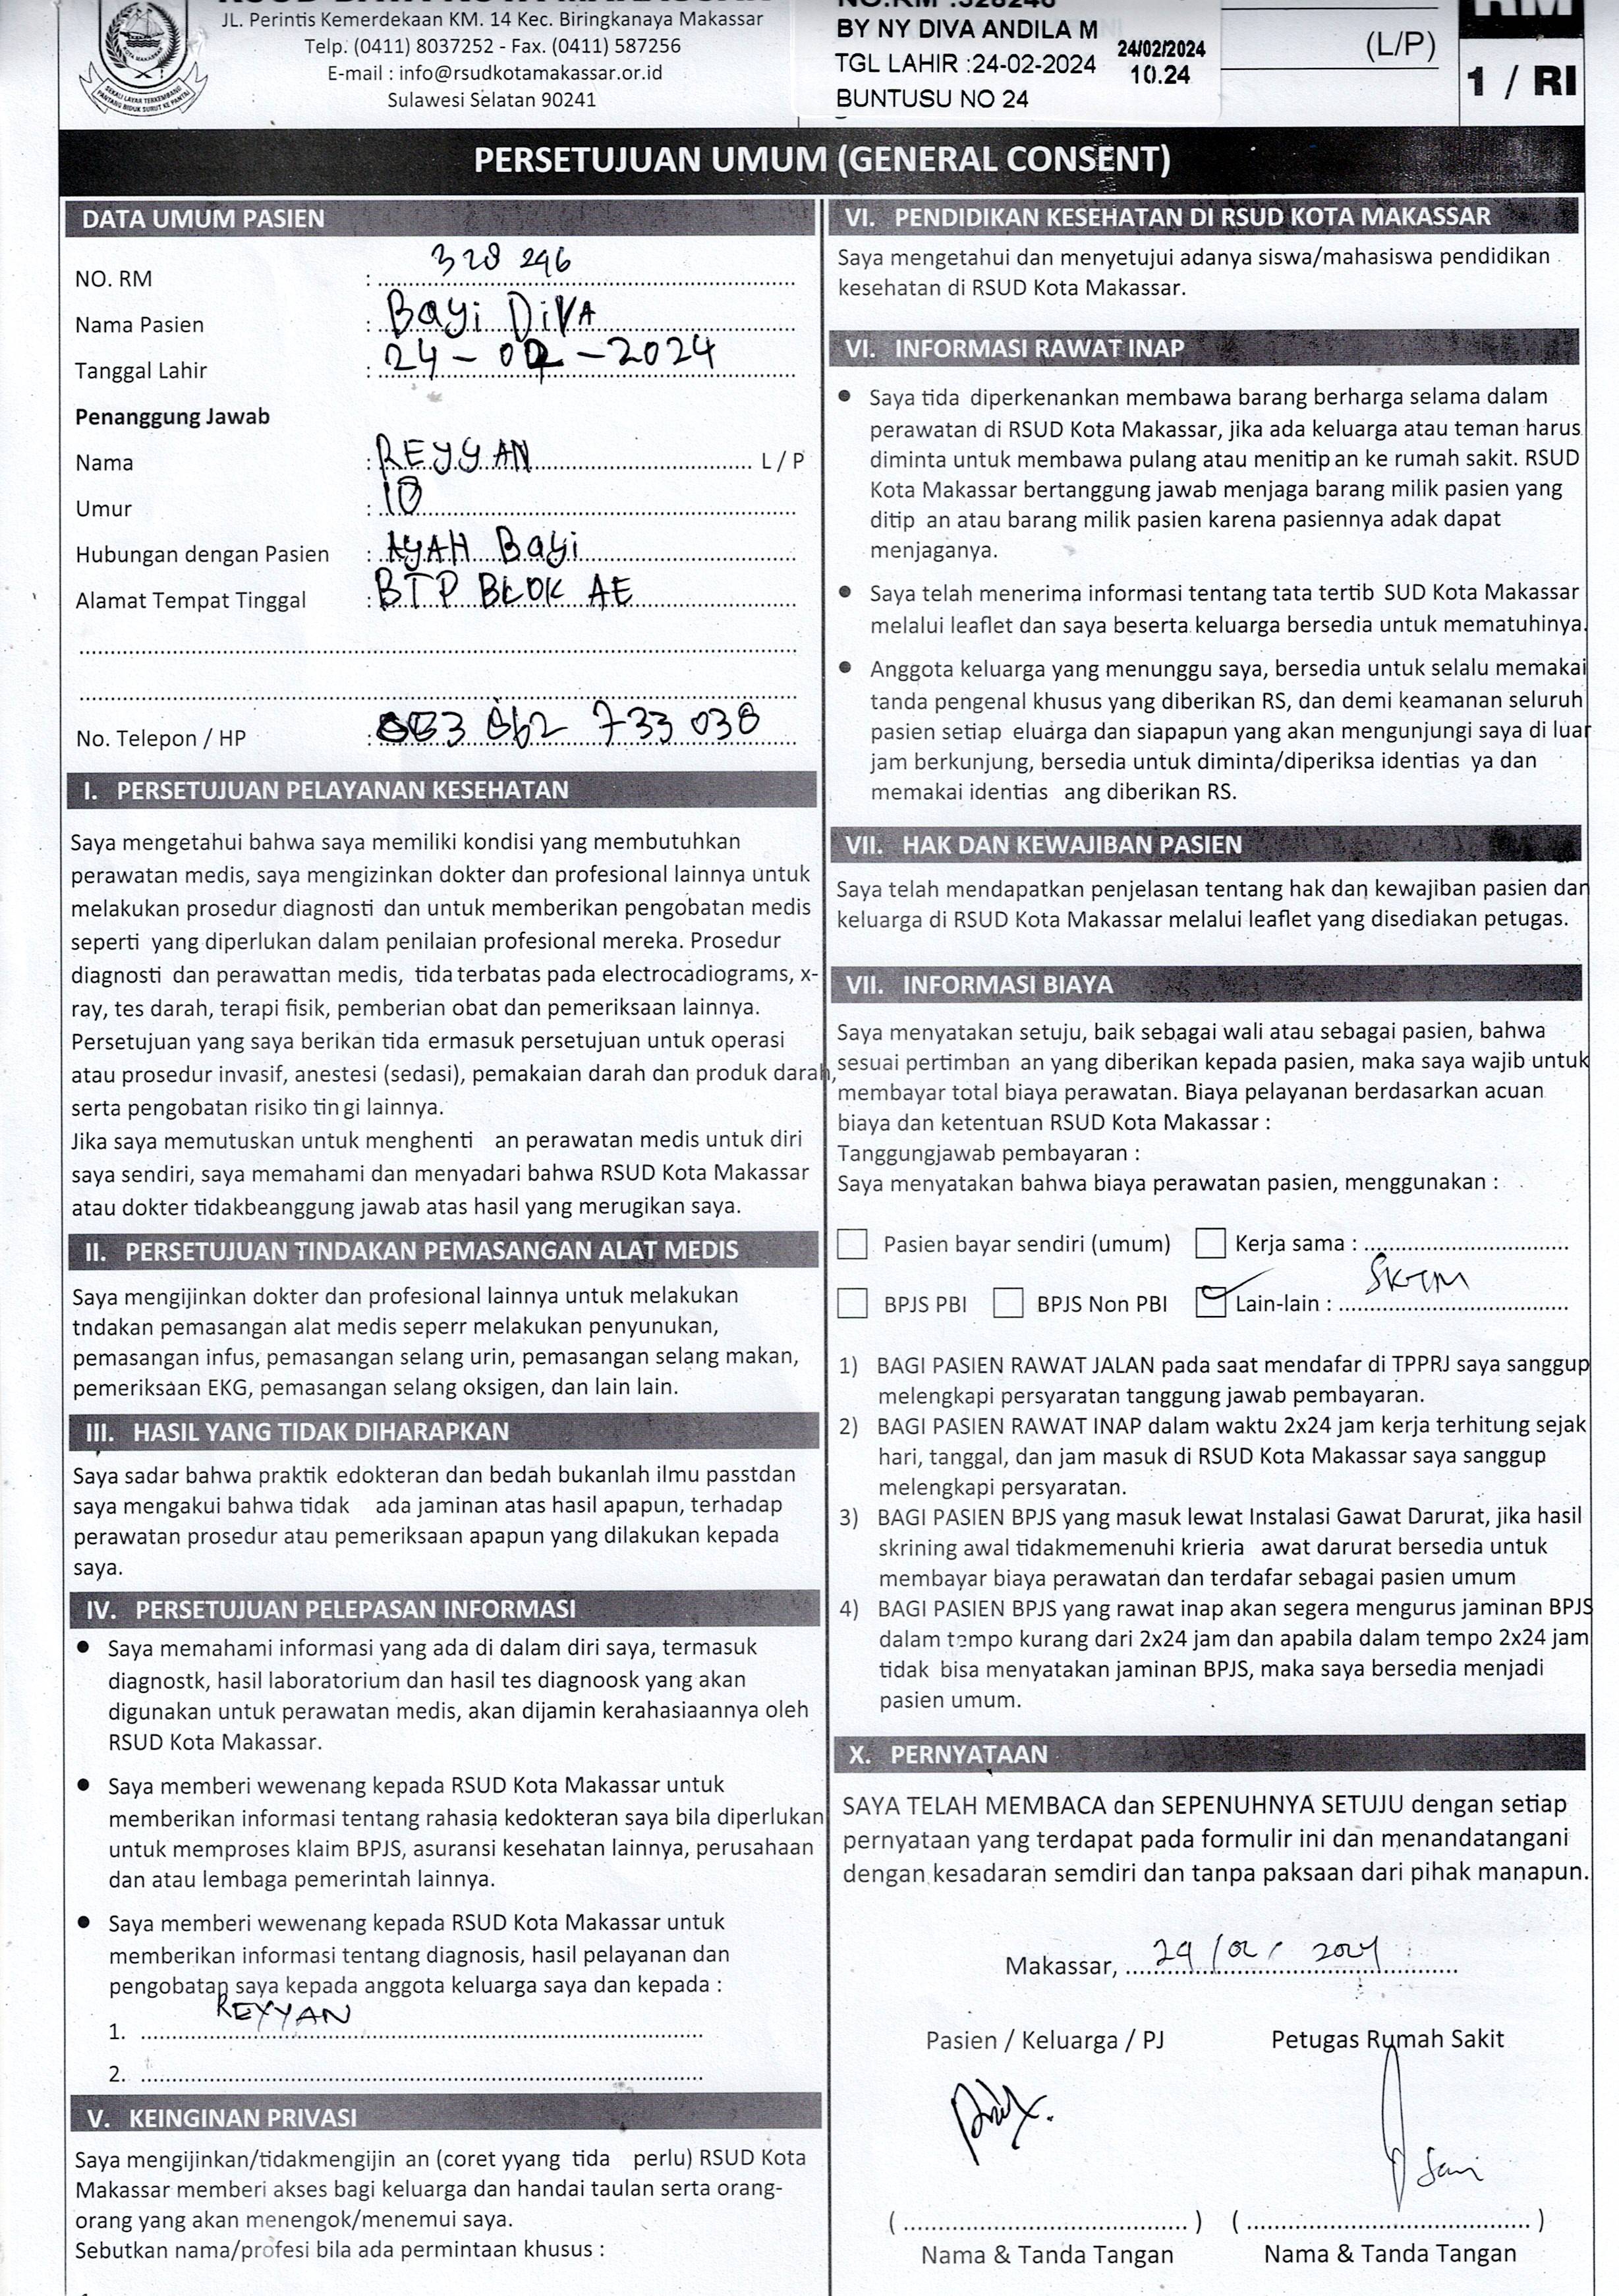 JL. Perintis Kemerdekaan KM. 14 Kec. Biringkanaya Makassar
Telp. (0411) 8037252 - Fax. (0411) 587256
E-mail : info@rsudkotamakassar.or.id
Sulawesi Selatan 90241
SEKALI LAYAR TERKEMBANG
PANTANG BIDUK SURUT KE PANTAI
NO.RM :328246
BY NY DIVA ANDILA M
TGL LAHIR :24-02-2024
BUNTUSU NO 24
24/02/2024
10.24
(L/P)
RM
1 / RI
PERSETUJUAN UMUM (GENERAL CONSENT)
DATA UMUM PASIEN
NO. RM : 328 246
Nama Pasien : Bayi DiVA
Tanggal Lahir : 24 - 02 - 2024
Penanggung Jawab
Nama : REYYAN L / P
Umur : 18
Hubungan dengan Pasien : AYAH Bayi
Alamat Tempat Tinggal : BTP BLOK AE
No. Telepon / HP : 733 038
I. PERSETUJUAN PELAYANAN KESEHATAN
Saya mengetahui bahwa saya memiliki kondisi yang membutuhkan
perawatan medis, saya mengizinkan dokter dan profesional lainnya untuk
melakukan prosedur diagnosti dan untuk memberikan pengobatan medis
seperti yang diperlukan dalam penilaian profesional mereka. Prosedur
diagnosti dan perawattan medis, tida terbatas pada electrocadiograms, x-
ray, tes darah, terapi fisik, pemberian obat dan pemeriksaan lainnya.
Persetujuan yang saya berikan tida ermasuk persetujuan untuk operasi
atau prosedur invasif, anestesi (sedasi), pemakaian darah dan produk darah,
serta pengobatan risiko tin gi lainnya.
Jika saya memutuskan untuk menghenti an perawatan medis untuk diri
saya sendiri, saya memahami dan menyadari bahwa RSUD Kota Makassar
atau dokter tidakbeanggung jawab atas hasil yang merugikan saya.
II. PERSETUJUAN TINDAKAN PEMASANGAN ALAT MEDIS
Saya mengijinkan dokter dan profesional lainnya untuk melakukan
tndakan pemasangan alat medis seperr melakukan penyunukan,
pemasangan infus, pemasangan selang urin, pemasangan selang makan,
pemeriksaan EKG, pemasangan selang oksigen, dan lain lain.
III. HASIL YANG TIDAK DIHARAPKAN
Saya sadar bahwa praktik edokteran dan bedah bukanlah ilmu passtdan
saya mengakui bahwa tidak ada jaminan atas hasil apapun, terhadap
perawatan prosedur atau pemeriksaan apapun yang dilakukan kepada
saya.
IV. PERSETUJUAN PELEPASAN INFORMASI
● Saya memahami informasi yang ada di dalam diri saya, termasuk
diagnostk, hasil laboratorium dan hasil tes diagnoosk yang akan
digunakan untuk perawatan medis, akan dijamin kerahasiaannya oleh
RSUD Kota Makassar.
● Saya memberi wewenang kepada RSUD Kota Makassar untuk
memberikan informasi tentang rahasia kedokteran saya bila diperlukan
untuk memproses klaim BPJS, asuransi kesehatan lainnya, perusahaan
dan atau lembaga pemerintah lainnya.
● Saya memberi wewenang kepada RSUD Kota Makassar untuk
memberikan informasi tentang diagnosis, hasil pelayanan dan
pengobatan saya kepada anggota keluarga saya dan kepada :
1. REYYAN
2.
V. KEINGINAN PRIVASI
Saya mengijinkan/tidakmengijin an (coret yyang tida perlu) RSUD Kota
Makassar memberi akses bagi keluarga dan handai taulan serta orang-
orang yang akan menengok/menemui saya.
Sebutkan nama/profesi bila ada permintaan khusus :
VI. PENDIDIKAN KESEHATAN DI RSUD KOTA MAKASSAR
Saya mengetahui dan menyetujui adanya siswa/mahasiswa pendidikan
kesehatan di RSUD Kota Makassar.
VI. INFORMASI RAWAT INAP
● Saya tida diperkenankan membawa barang berharga selama dalam
perawatan di RSUD Kota Makassar, jika ada keluarga atau teman harus
diminta untuk membawa pulang atau menitip an ke rumah sakit. RSUD
Kota Makassar bertanggung jawab menjaga barang milik pasien yang
ditip an atau barang milik pasien karena pasiennya adak dapat
menjaganya.
● Saya telah menerima informasi tentang tata tertib SUD Kota Makassar
melalui leaflet dan saya beserta keluarga bersedia untuk mematuhinya.
● Anggota keluarga yang menunggu saya, bersedia untuk selalu memakai
tanda pengenal khusus yang diberikan RS, dan demi keamanan seluruh
pasien setiap eluarga dan siapapun yang akan mengunjungi saya di luar
jam berkunjung, bersedia untuk diminta/diperiksa identias ya dan
memakai identias ang diberikan RS.
VII. HAK DAN KEWAJIBAN PASIEN
Saya telah mendapatkan penjelasan tentang hak dan kewajiban pasien dan
keluarga di RSUD Kota Makassar melalui leaflet yang disediakan petugas.
VII. INFORMASI BIAYA
Saya menyatakan setuju, baik sebagai wali atau sebagai pasien, bahwa
sesuai pertimban an yang diberikan kepada pasien, maka saya wajib untuk
membayar total biaya perawatan. Biaya pelayanan berdasarkan acuan
biaya dan ketentuan RSUD Kota Makassar :
Tanggungjawab pembayaran :
Saya menyatakan bahwa biaya perawatan pasien, menggunakan :
Pasien bayar sendiri (umum) Kerja sama :
BPJS PBI BPJS Non PBI Lain-lain : SKTM
1) BAGI PASIEN RAWAT JALAN pada saat mendafar di TPPRJ saya sanggup
melengkapi persyaratan tanggung jawab pembayaran.
2) BAGI PASIEN RAWAT INAP dalam waktu 2x24 jam kerja terhitung sejak
hari, tanggal, dan jam masuk di RSUD Kota Makassar saya sanggup
melengkapi persyaratan.
3) BAGI PASIEN BPJS yang masuk lewat Instalasi Gawat Darurat, jika hasil
skrining awal tidakmemenuhi krieria awat darurat bersedia untuk
membayar biaya perawatan dan terdafar sebagai pasien umum
4) BAGI PASIEN BPJS yang rawat inap akan segera mengurus jaminan BPJS
dalam tempo kurang dari 2x24 jam dan apabila dalam tempo 2x24 jam
tidak bisa menyatakan jaminan BPJS, maka saya bersedia menjadi
pasien umum.
X. PERNYATAAN
SAYA TELAH MEMBACA dan SEPENUHNYA SETUJU dengan setiap
pernyataan yang terdapat pada formulir ini dan menandatangani
dengan kesadaran semdiri dan tanpa paksaan dari pihak manapun.
Makassar, 24/02/2024
Pasien / Keluarga / PJ Petugas Rumah Sakit
Sani
( ) ( )
Nama & Tanda Tangan Nama & Tanda Tangan